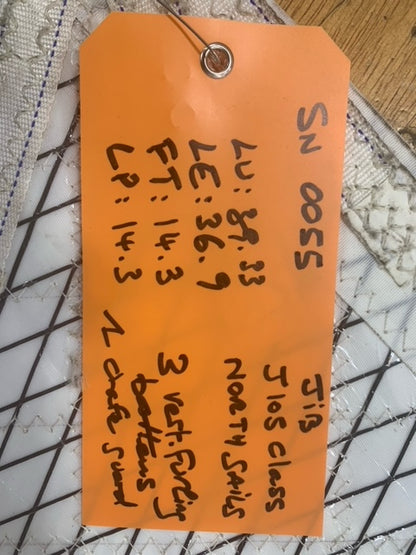 SN 0055
LU: 39.33
LE: 36.9
FT: 14.3
LP: 14.3
JiB
J105 CLASS
NORTH SAILS
3 vert. furling
battens
1 chafe guard